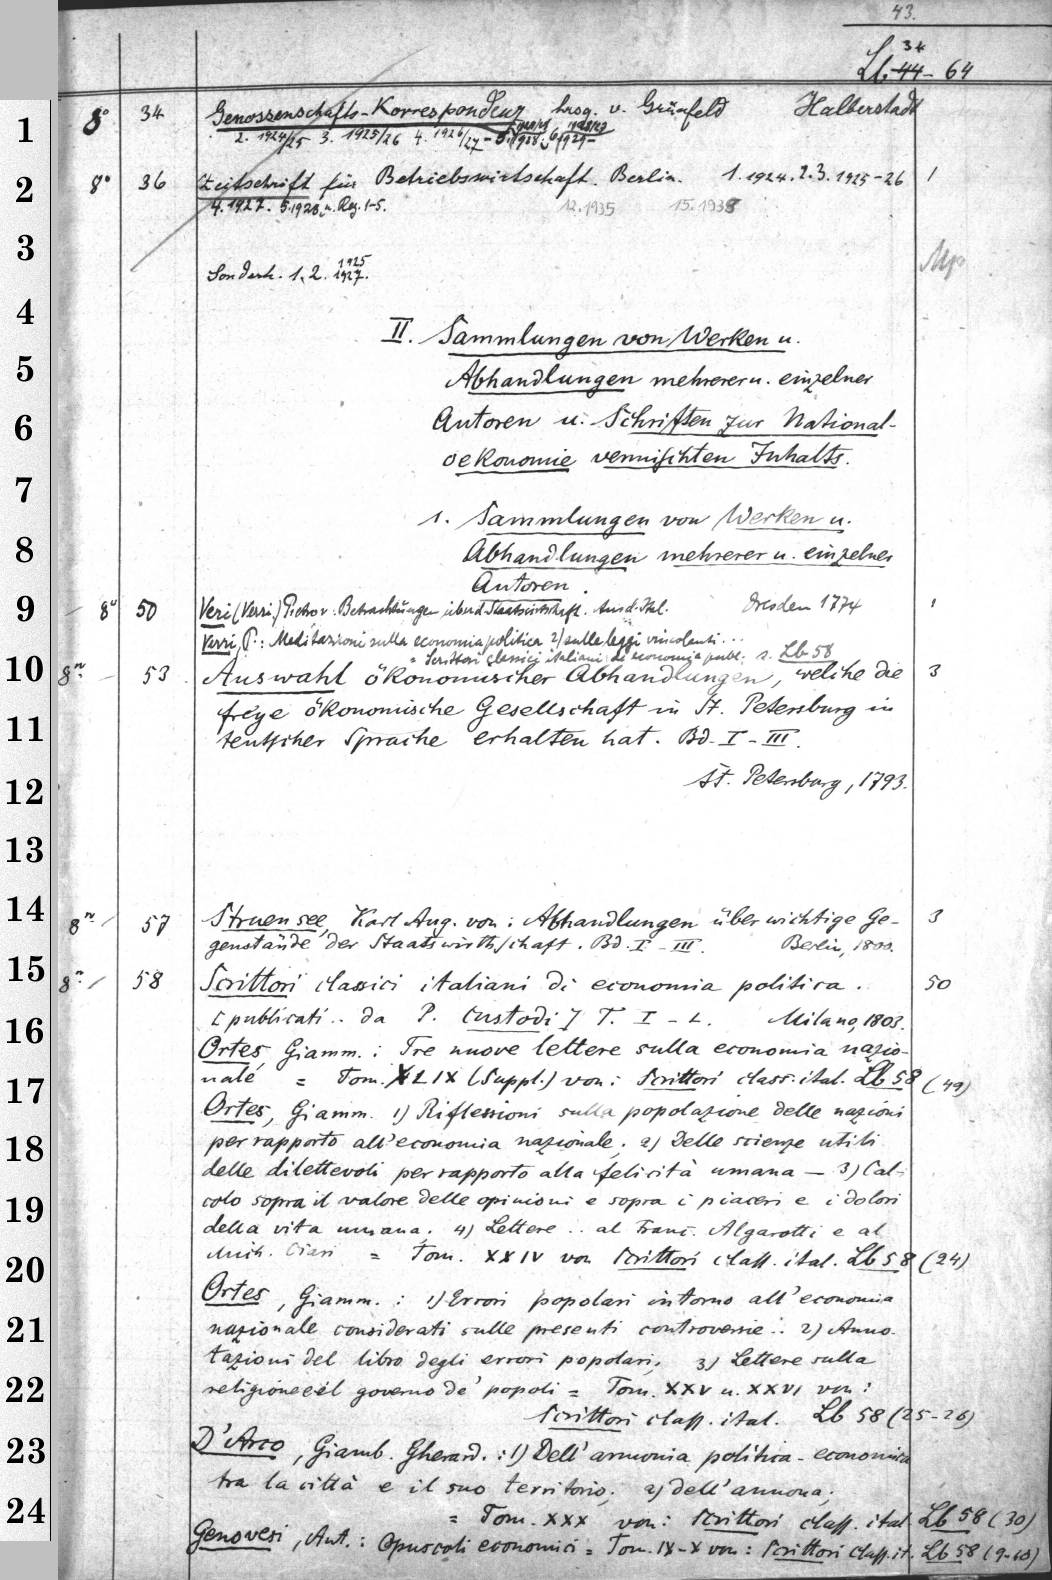 43.
34
Lb 44 - 64
1 8° 34 Genossenschafts-Korrespondenz hrsg. v. Grünfeld Halberstadt
2. 1924/25 3. 1925/26 4. 1926/27 -
2 8° 36 Zeitschrift für Betriebswirtschaft. Berlin. 1. 1924. 2. 3. 1925-26 1
4. 1927. 5. 1928 u. Reg. 1-5. 12. 1935 15. 1938
3
1925
Sonderh. 1. 2. 1927.
4 II. Sammlungen von Werken u.
5 Abhandlungen mehrerer u. einzelner
6 Autoren u. Schriften zur National-
oekonomie vermischten Inhalts.
7
1. Sammlungen von Werken u.
8 Abhandlungen mehrerer u. einzelner
Autoren.
9 8° 50 Veri (Verri) Pietro v: Betrachtungen über d. Staatswirtschaft. Aus d. Ital. Dresden 1774 1
Verri, P.: Meditazioni sulla economia politica 2) sulle leggi vincolanti ...
= Scrittori classici italiani di economia polit. s. Lb 58
10 8° 53 Auswahl ökonomischer Abhandlungen, welche die 3
freye ökonomische Gesellschaft in St. Petersburg in
11 teutscher Sprache erhalten hat. Bd. I - III.
12 St. Petersburg, 1793.
13
14 8° 57 Struensee, Karl Aug. von: Abhandlungen über wichtige Ge- 3
genstände der Staatswirthschaft. Bd. I - III. Berlin, 1800.
15 8° 58 Scrittori classici italiani di economia politica. 50
16 [publicati .. da P. Custodi] T. I - L. Milano, 1803.
Ortes, Giamm.: Tre nuove lettere sulla economia nazio-
17 nale = Tom. XLIX (Suppl.) von: Scrittori class. ital. Lb 58 (49)
Ortes, Giamm. 1) Riflessioni sulla popolazione delle nazioni
18 per rapporto all'economia nazionale. 2) Delle scienze utili
delle dilettevoli per rapporto alla felicità umana - 3) Cal-
19 colo sopra il valore delle opinioni e sopra i piaceri e i dolori
della vita umana. 4) Lettere .. al Franc. Algarotti e al
20 Mich. Ciani = Tom. XXIV von Scrittori class. ital. Lb 58 (24)
Ortes, Giamm.: 1) Errori popolari intorno all'economia
21 nazionale considerati sulle presenti controversie .. 2) Anno-
tazioni del libro degli errori popolari, 3) Lettere sulla
22 religione e il governo de' popoli = Tom. XXV u. XXVI von:
Scrittori class. ital. Lb 58 (25-26)
23 D'Arco, Giamb. Gherard.: 1) Dell'armonia politica-economica
tra la città e il suo territorio; 2) dell'annona;
24 = Tom. XXX von: Scrittori class. ital. Lb 58 (30)
Genovesi, Ant.: Opuscoli economici = Tom. IX-X von: Scrittori class. it. Lb 58 (9-10)